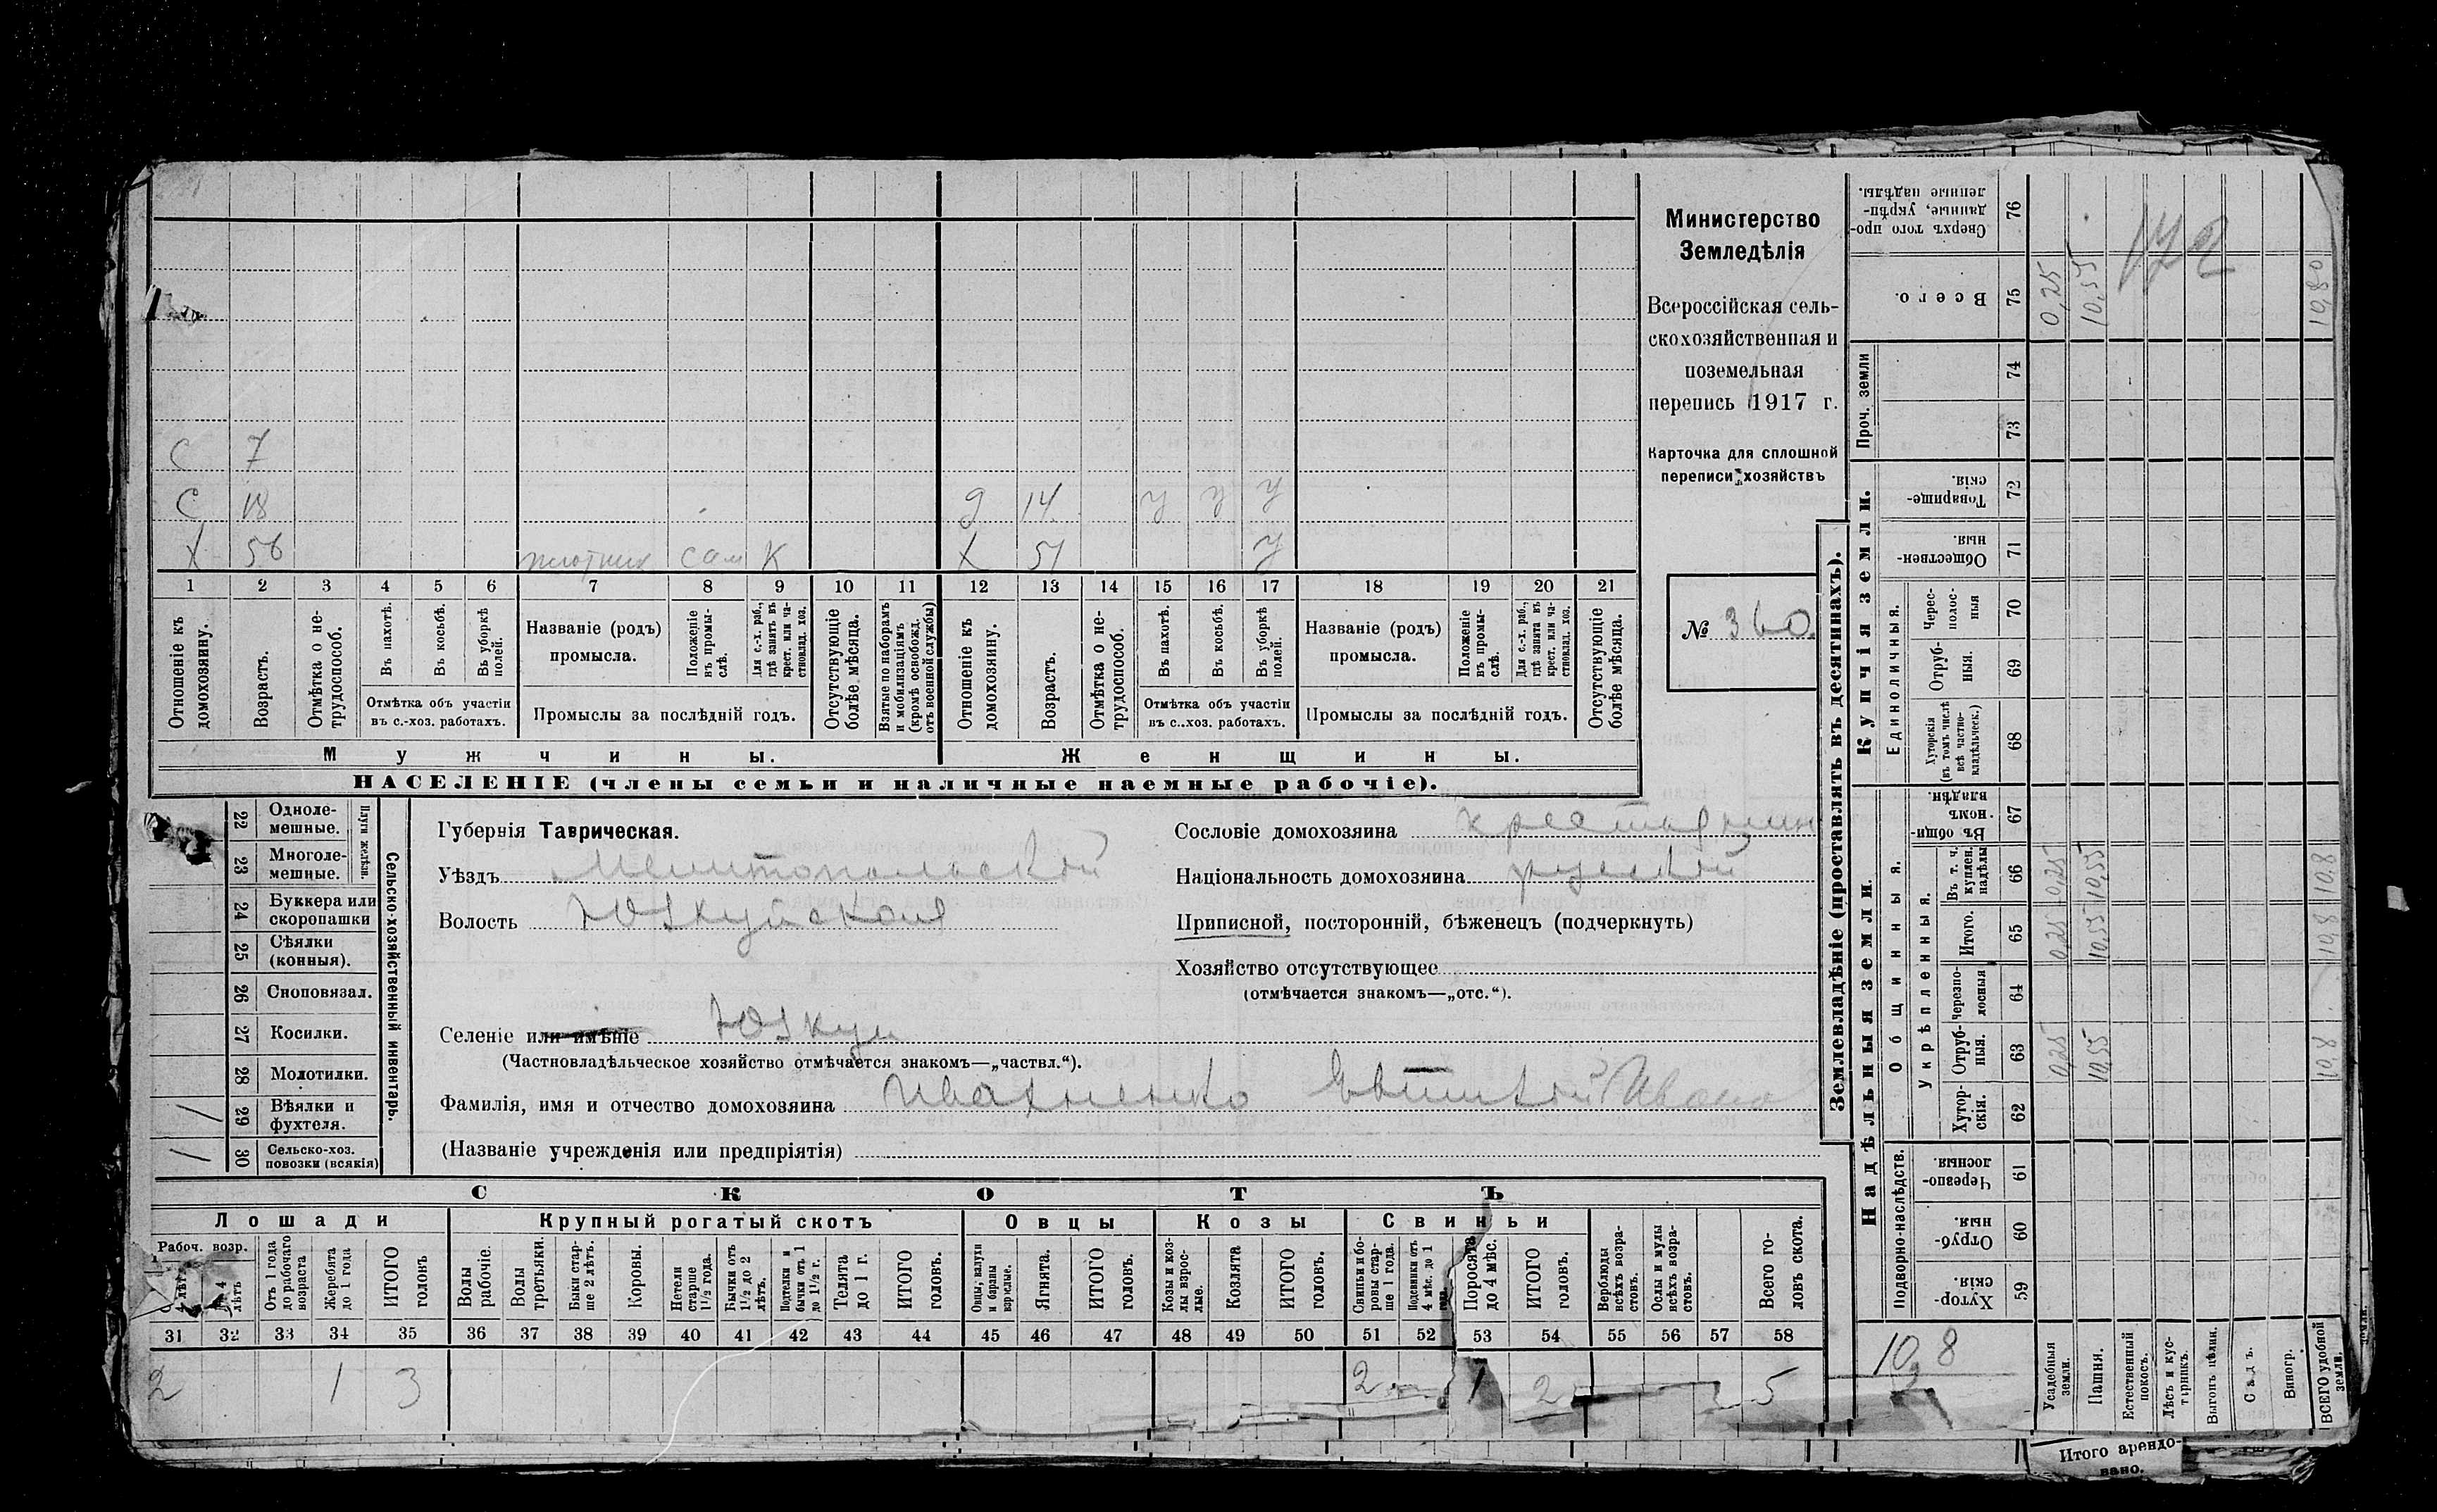 С 7
С 18 д 14 у у у
Х 56 плотник сам К Х 51 у
1 2 3 4 5 6 7 8 9 10 11 12 13 14 15 16 17 18 19 20 21
Отношеніе къ домохозяину.
Возрастъ.
Отмѣтка о не-трудоспособ.
Въ пахотѣ.
Въ косьбѣ.
Въ уборкѣ полей.
Отмѣтка объ участіи
въ с.-хоз. работахъ.
Названіе (родъ)
промысла.
Положеніе въ промы-слѣ.
Для с.-х. раб., гдѣ занятъ въ крест. или ча-стновлад. хоз.
Промыслы за послѣдній годъ.
Отсутствующіе болѣе мѣсяца.
Взятые по наборамъ и мобилизаціямъ (кромѣ освобожд. отъ военной службы)
Отношеніе къ домохозяину.
Возрастъ.
Отмѣтка о не-трудоспособ.
Въ пахотѣ.
Въ косьбѣ.
Въ уборкѣ полей.
Отмѣтка объ участіи
въ с.-хоз. работахъ.
Названіе (родъ)
промысла.
Положеніе въ промы-слѣ.
Для с.-х. раб., гдѣ занята въ крест. или ча-стновлад. хоз.
Промыслы за послѣдній годъ.
Отсутствующіе болѣе мѣсяца.
Мужчины. Женщины.
НАСЕЛЕНІЕ (члены семьи и наличные наемные рабочіе).
Министерство
Земледѣлія
Всероссійская сель-
скохозяйственная и
поземельная
перепись 1917 г.
Карточка для сплошной
переписи хозяйствъ
№ 360
22 Одноле-мешные.
23 Многоле-мешные.
Плуги желѣзн.
24 Буккера или скоропашки
25 Сѣялки (конныя).
26 Сноповязал.
27 Косилки.
28 Молотилки.
1 29 Вѣялки и фухтеля.
1 30 Сельско-хоз. повозки (всякія)
Сельско-хозяйственный инвентарь.
Губернія Таврическая.
Уѣздъ Мелитопольскій
Волость Юзкуйская
Селеніе или имѣніе Юзкуи
(Частновладѣльческое хозяйство отмѣчается знакомъ—„частвл.“).
Фамилія, имя и отчество домохозяина Ивахненко Евтихій Ивано
(Названіе учрежденія или предпріятія)
Сословіе домохозяина крестьянин
Національность домохозяина русскій
Приписной, посторонній, бѣженец (подчеркнуть)
Хозяйство отсутствующее
(отмѣчается знакомъ—„отс.“).
СКОТЪ
Лошади Крупный рогатый скотъ Овцы Козы Свиньи
Рабоч. возр.
4 лѣтъ
4 лѣтъ
Отъ 1 года до рабочаго возраста
Жеребята до 1 года
ИТОГО головъ
Волы рабочіе.
Волы третьяки.
Быки стар-ше 2 лѣтъ.
Коровы.
Нетели старше 1½ года.
Бычки отъ 1½ до 2 лѣтъ.
Подтелки и бычки отъ 1 до 1½ г.
Телята до 1 г.
ИТОГО головъ.
Овцы, валухи и бараны взрослые.
Ягнята.
ИТОГО головъ.
Козы и коз-лы взрос-лые.
Козлята
ИТОГО головъ.
Свиньи и бо-ровы стар-ше 1 года.
Подсвинки отъ 4 мѣс. до 1 года.
Поросята до 4 мѣс.
ИТОГО головъ.
Верблюды всѣхъ возра-стовъ.
Ослы и мулы всѣхъ возра-стовъ.
Всего го-ловъ скота.
31 32 33 34 35 36 37 38 39 40 41 42 43 44 45 46 47 48 49 50 51 52 53 54 55 56 57 58
2 1 3 2 1 2 5
Землевладѣніе (проставлять въ десятинахъ).
Надѣльныя земли. Купчія земли. Проч. земли
Подворно-наслѣдств. Общинныя. Единоличныя.
Укрѣпленныя.
Хутор-скія 59
Отруб-ныя. 60
Черезпо-лосныя. 61
Хутор-скія. 62
Отруб-ныя. 63
Черезпо-лосныя 64
Итого. 65
Въ т. ч. куплен. надѣлы 66
Въ общин-номъ владѣн. 67
Хуторскія (въ томъ числѣ всѣ частно-владѣльческ.) 68
Отруб-ныя. 69
Черес-полос-ныя 70
Обществен-ныя. 71
Товарище-скія. 72
73
74
Всего. 75
Сверхъ того про-данные, укрѣп-ленные надѣлы. 76
10,8
Усадебныя земли. 0,25 0,25 0,25 0,25
Пашня. 10,55 10,55 10,55 10,55
Естественный покосъ.
Лѣсъ и кус-тарникъ.
Выгонъ цѣлин.
Садъ.
Виногр.
ВСЕГО удобной земли. 10,8 10,8 10.8 10,80
172
Итого арендо-
вано.